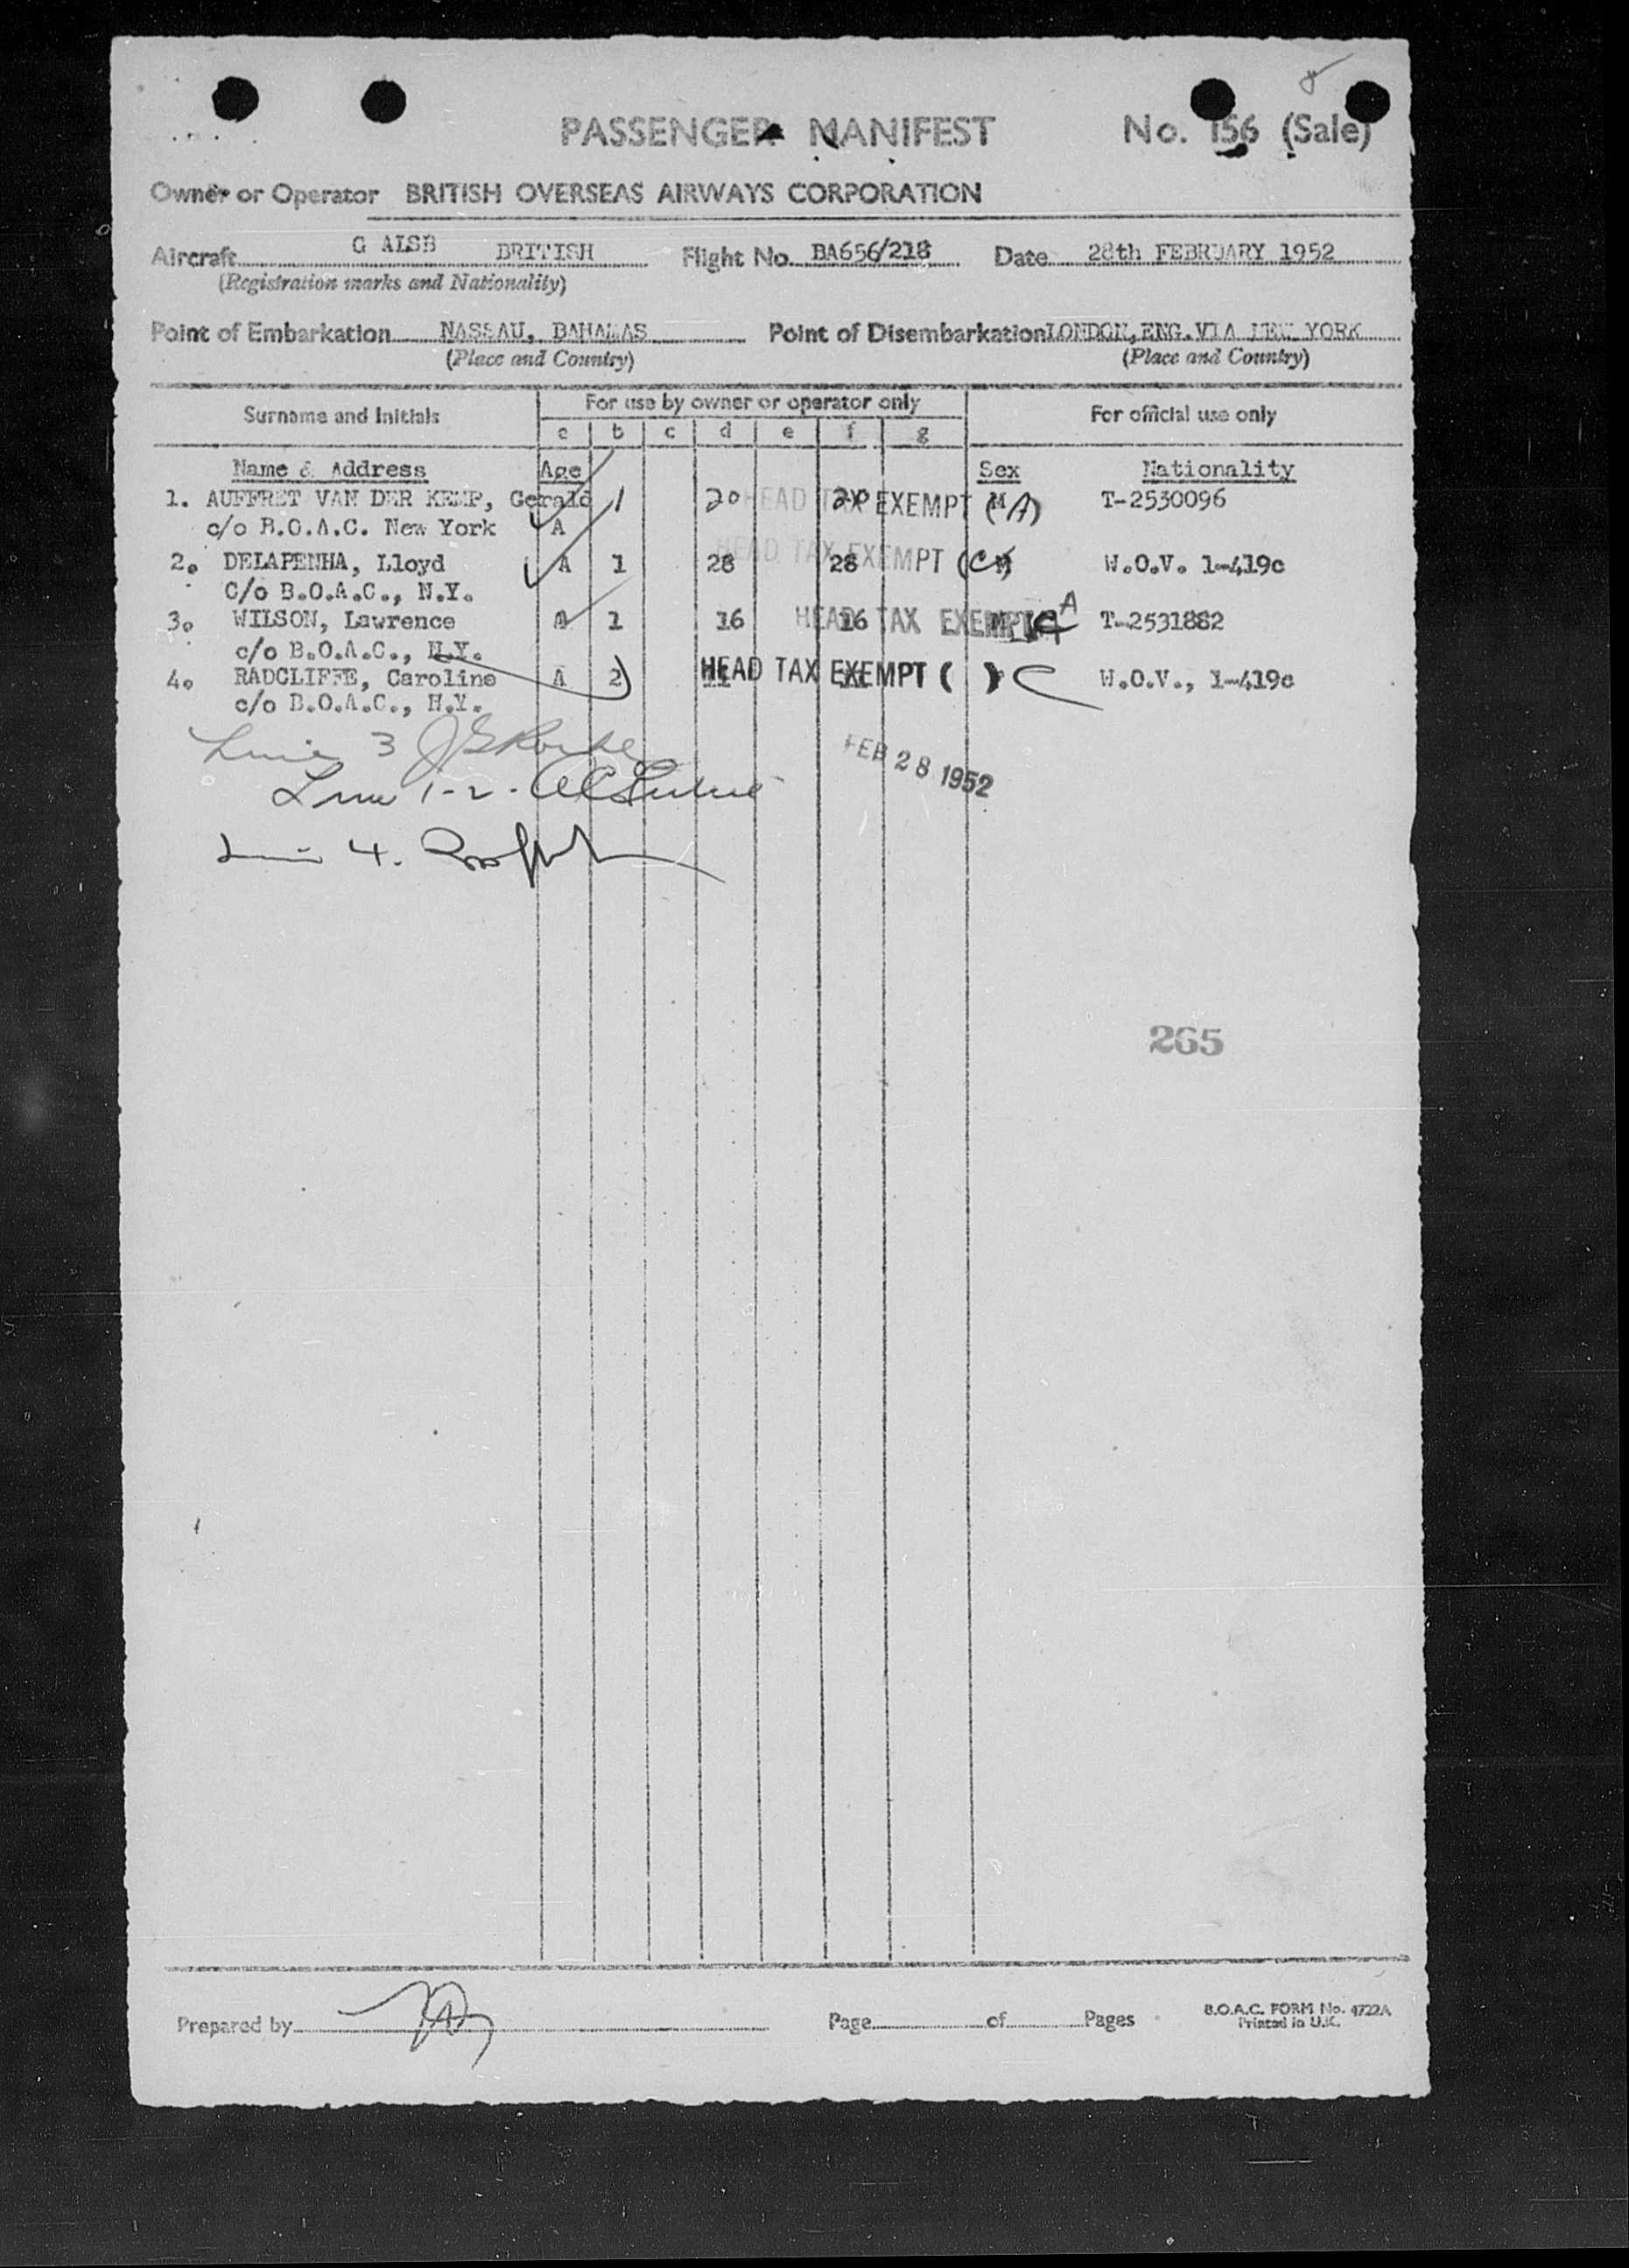 PASSENGER MANIFEST No. 156 (Sale)
Owner or Operator BRITISH OVERSEAS AIRWAYS CORPORATION
Aircraft G ALSB BRITISH Flight No. BA656/218 Date 28th FEBRUARY 1952
(Registration marks and Nationality)
Point of Embarkation NASSAU, BAHAMAS Point of Disembarkation LONDON, ENG. VIA NEW YORK
(Place and Country) (Place and Country)
Surname and Initials For use by owner or operator only For official use only
a b c d e f g
Name & Address Age Sex Nationality
1. AUFFRET VAN DER KEMP, Gerald 1 20 HEAD TAX EXEMPT 20 (M A) T-2530096
c/o B.O.A.C. New York A
2. DELAPENHA, Lloyd A 1 28 HEAD TAX EXEMPT 28 (C) W.O.V. 1-419c
C/o B.O.A.C., N.Y.
3. WILSON, Lawrence A 1 16 HEAD TAX EXEMPT 16 A T-2531882
c/o B.O.A.C., N.Y.
4. RADCLIFFE, Caroline A 2 HEAD TAX EXEMPT ( ) C W.O.V., 1-419c
c/o B.O.A.C., N.Y.
Line 3
FEB 28 1952
Line 1-2.
Line 4.
265
Prepared by Page of Pages B.O.A.C. FORM No. 4722A
Printed in U.K.